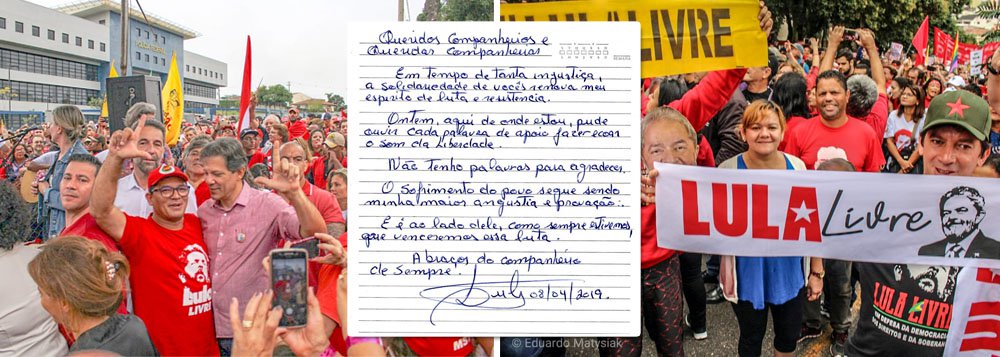 POLÍCIA FEDERAL
Lula
LIVRE
Queridos Companheiros e
Queridas Companheiras
Em tempo de tanta injustiça,
a solidariedade de vocês renova meu
espírito de luta e resistencia.
Ontem, aqui de onde estou, pude
ouvir cada palavra de apoio fazer ecoar
o som da liberdade.
Não tenho palavras para agradecer.
O sofrimento do povo segue sendo
minha maior angustia e provação.
E é ao lado dele, como sempre estivemos,
que venceremos essa luta.
Abraços do companheiro
de sempre.
Lula 08/04/2019.
© Eduardo Matysiak
LULA LIVRE
LULA Livre
LULA LIVRE
EM DEFESA DA DEMOCRACIA
DOS DIREITOS E DA SOBERANIA